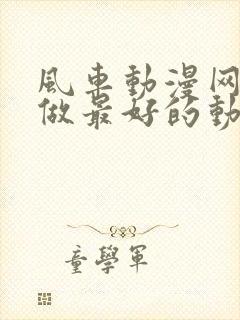 風車動漫网
做最好的動
童學軍